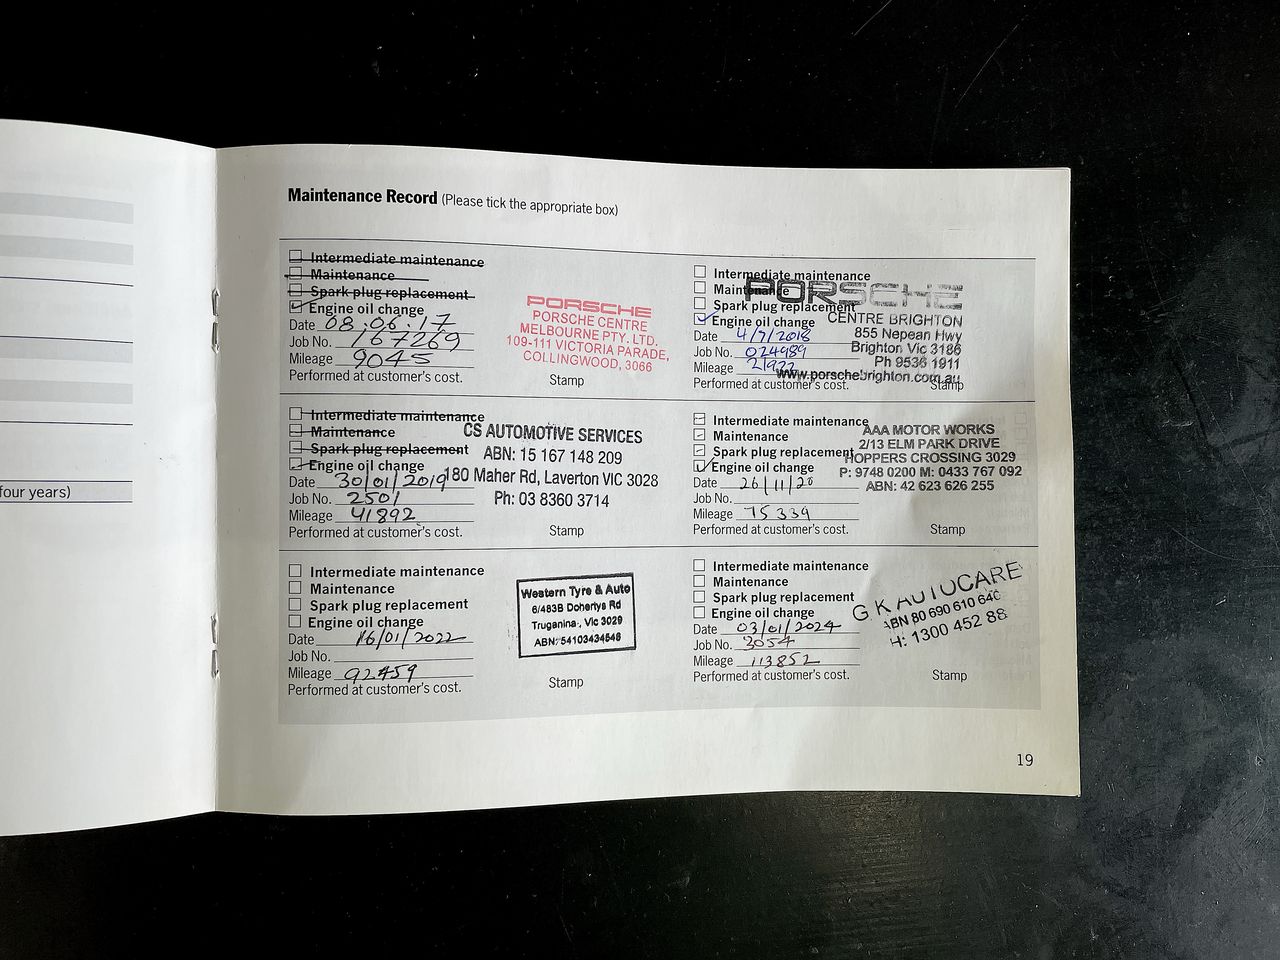 four years)
Maintenance Record (Please tick the appropriate box)
Intermediate maintenance
Maintenance
Spark plug replacement
Engine oil change
Date 08.06.17
Job No. 167269
Mileage 9045
Performed at customer's cost.
PORSCHE
PORSCHE CENTRE
MELBOURNE PTY. LTD.
109-111 VICTORIA PARADE,
COLLINGWOOD, 3066
Stamp
Intermediate maintenance
Maintenance
Spark plug replacement
Engine oil change
Date 4/7/2018
Job No. 024989
Mileage
Performed at customer's cost.
PORSCHE
CENTRE BRIGHTON
855 Nepean Hwy
Brighton Vic 3186
Ph 9536 1911
www.porschebrighton.com.au
Stamp
Intermediate maintenance
Maintenance
Spark plug replacement
Engine oil change
Date 30/01/2019
Job No. 2501
Mileage 41892
Performed at customer's cost.
CS AUTOMOTIVE SERVICES
ABN: 15 167 148 209
180 Maher Rd, Laverton VIC 3028
Ph: 03 8360 3714
Stamp
Intermediate maintenance
Maintenance
Spark plug replacement
Engine oil change
Date 26/11/20
Job No.
Mileage 75339
Performed at customer's cost.
AAA MOTOR WORKS
2/13 ELM PARK DRIVE
HOPPERS CROSSING 3029
P: 9748 0200 M: 0433 767 092
ABN: 42 623 626 255
Stamp
Intermediate maintenance
Maintenance
Spark plug replacement
Engine oil change
Date 16/01/2022
Job No.
Mileage 92459
Performed at customer's cost.
Western Tyre & Auto
6/483B Dohertys Rd
Truganina, Vic 3029
ABN: 54103434548
Stamp
Intermediate maintenance
Maintenance
Spark plug replacement
Engine oil change
Date 03/01/2024
Job No. 3054
Mileage 113852
Performed at customer's cost.
G K AUTOCARE
ABN 80 690 610 640
H: 1300 452 88
Stamp
19